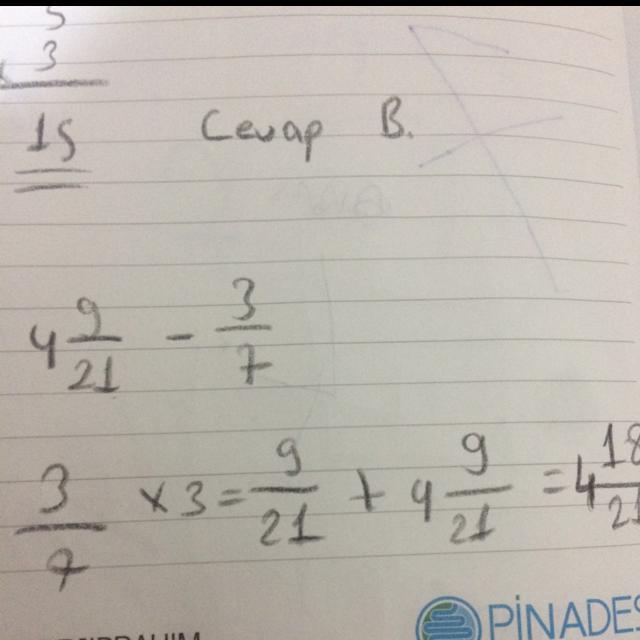 5
x 3
15
Cevap B.
4 9/21 - 3/7
3/7 x 3 = 9/21 + 4 9/21 = 4 18/21
PİNADES